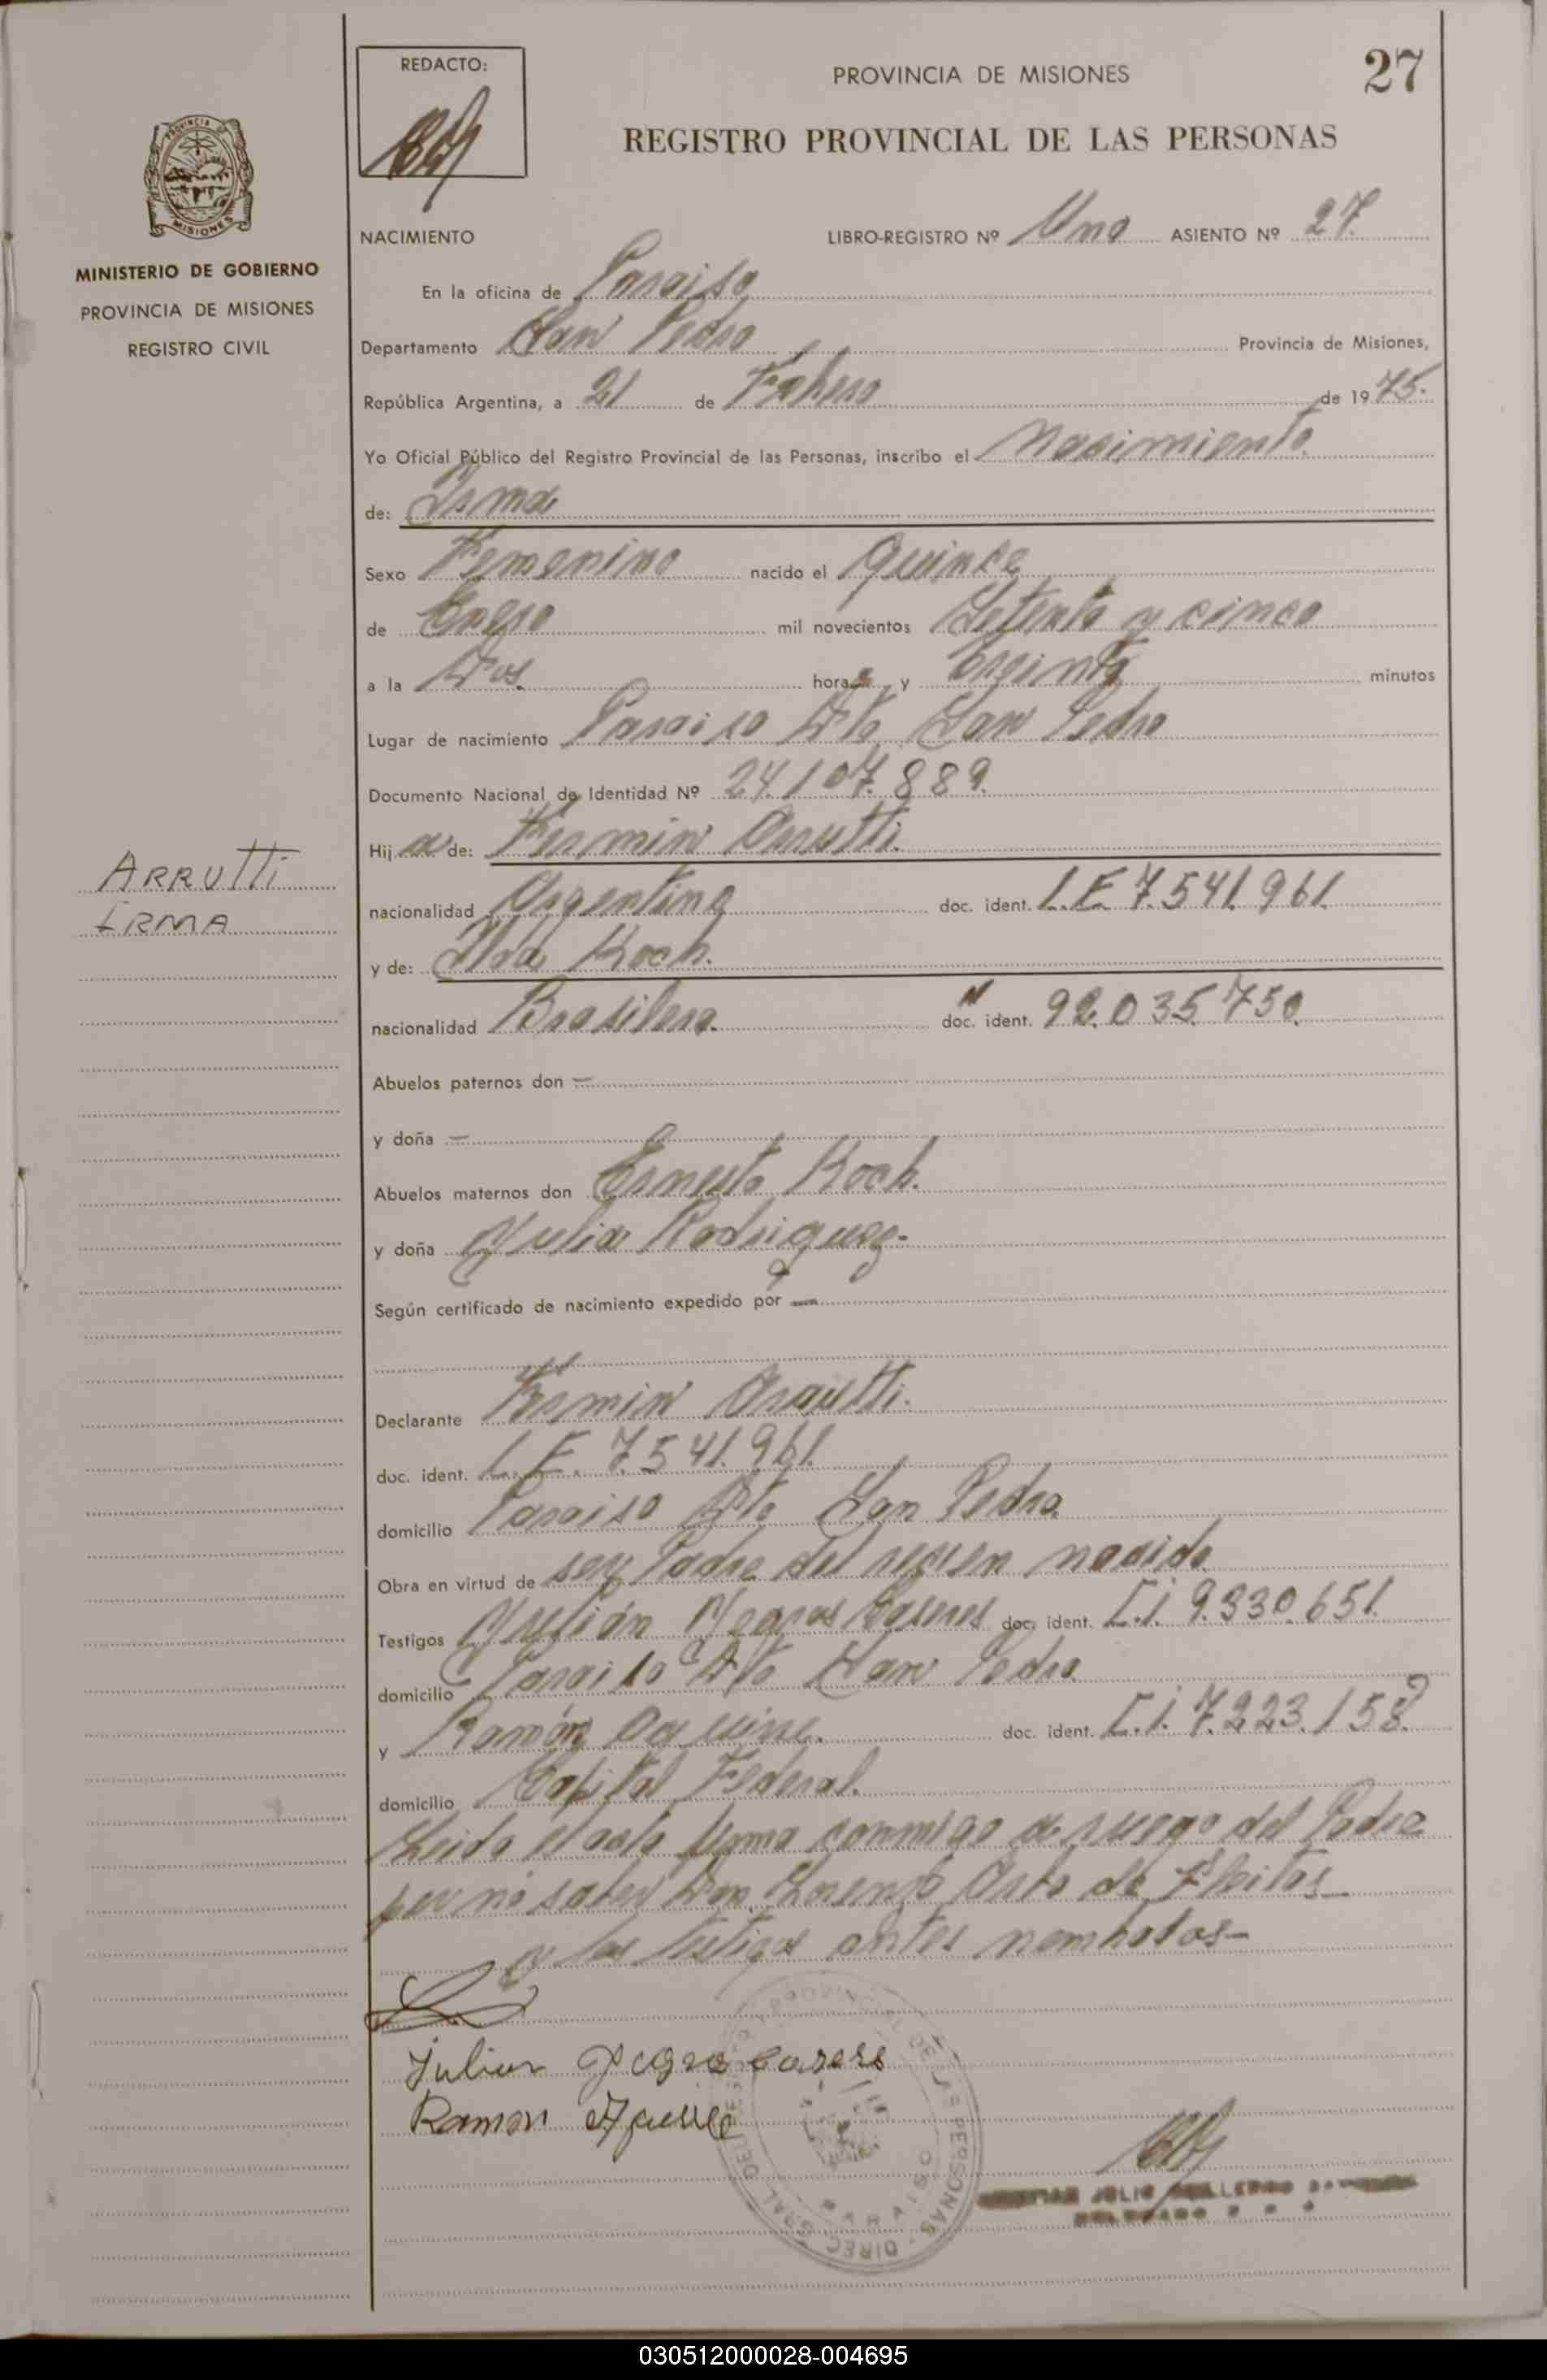 REDACTO:
PROVINCIA DE MISIONES
27
REGISTRO PROVINCIAL DE LAS PERSONAS
PROVINCIA DE
MISIONES
MINISTERIO DE GOBIERNO
PROVINCIA DE MISIONES
REGISTRO CIVIL
NACIMIENTO LIBRO-REGISTRO Nº Uno ASIENTO Nº 27.
En la oficina de Paraiso
Departamento San Pedro Provincia de Misiones,
República Argentina, a 21 de Febrero de 1975.
Yo Oficial Público del Registro Provincial de las Personas, inscribo el Nacimiento
de: Irma
Sexo Femenino nacido el Quince
de Enero mil novecientos Setenta y cinco
a la Dos horas y Treinta minutos
Lugar de nacimiento Paraiso Dto San Pedro
Documento Nacional de Identidad Nº 24.107.889.
Hija de: Fermin Arrutti.
ARRUTTI
IRMA
nacionalidad Argentina doc. ident. L.E. 7.541.961.
y de: Ilva Koch.
nacionalidad Brasilera. doc. ident. 92.035.750.
Abuelos paternos don —
y doña —
Abuelos maternos don Ernesto Koch.
y doña Yulia Rodriguez.
Según certificado de nacimiento expedido por —
Declarante Fermin Arrutti.
doc. ident. L.E. 7.541.961.
domicilio Paraiso Dto San Pedro.
Obra en virtud de ser Padre del recien nacido
Testigos Yulián doc. ident. C.I. 9.330.651.
domicilio Paraiso Dto San Pedro
y Ramón doc. ident. C.I. 7.223.158.
domicilio Capital Federal.
Leida el acta firma conmigo a ruego del Padre
por no saber Don Lorenzo de Fleitas
y los testigos antes nombrados-
Julian
Ramon
PARAISO
JULIO